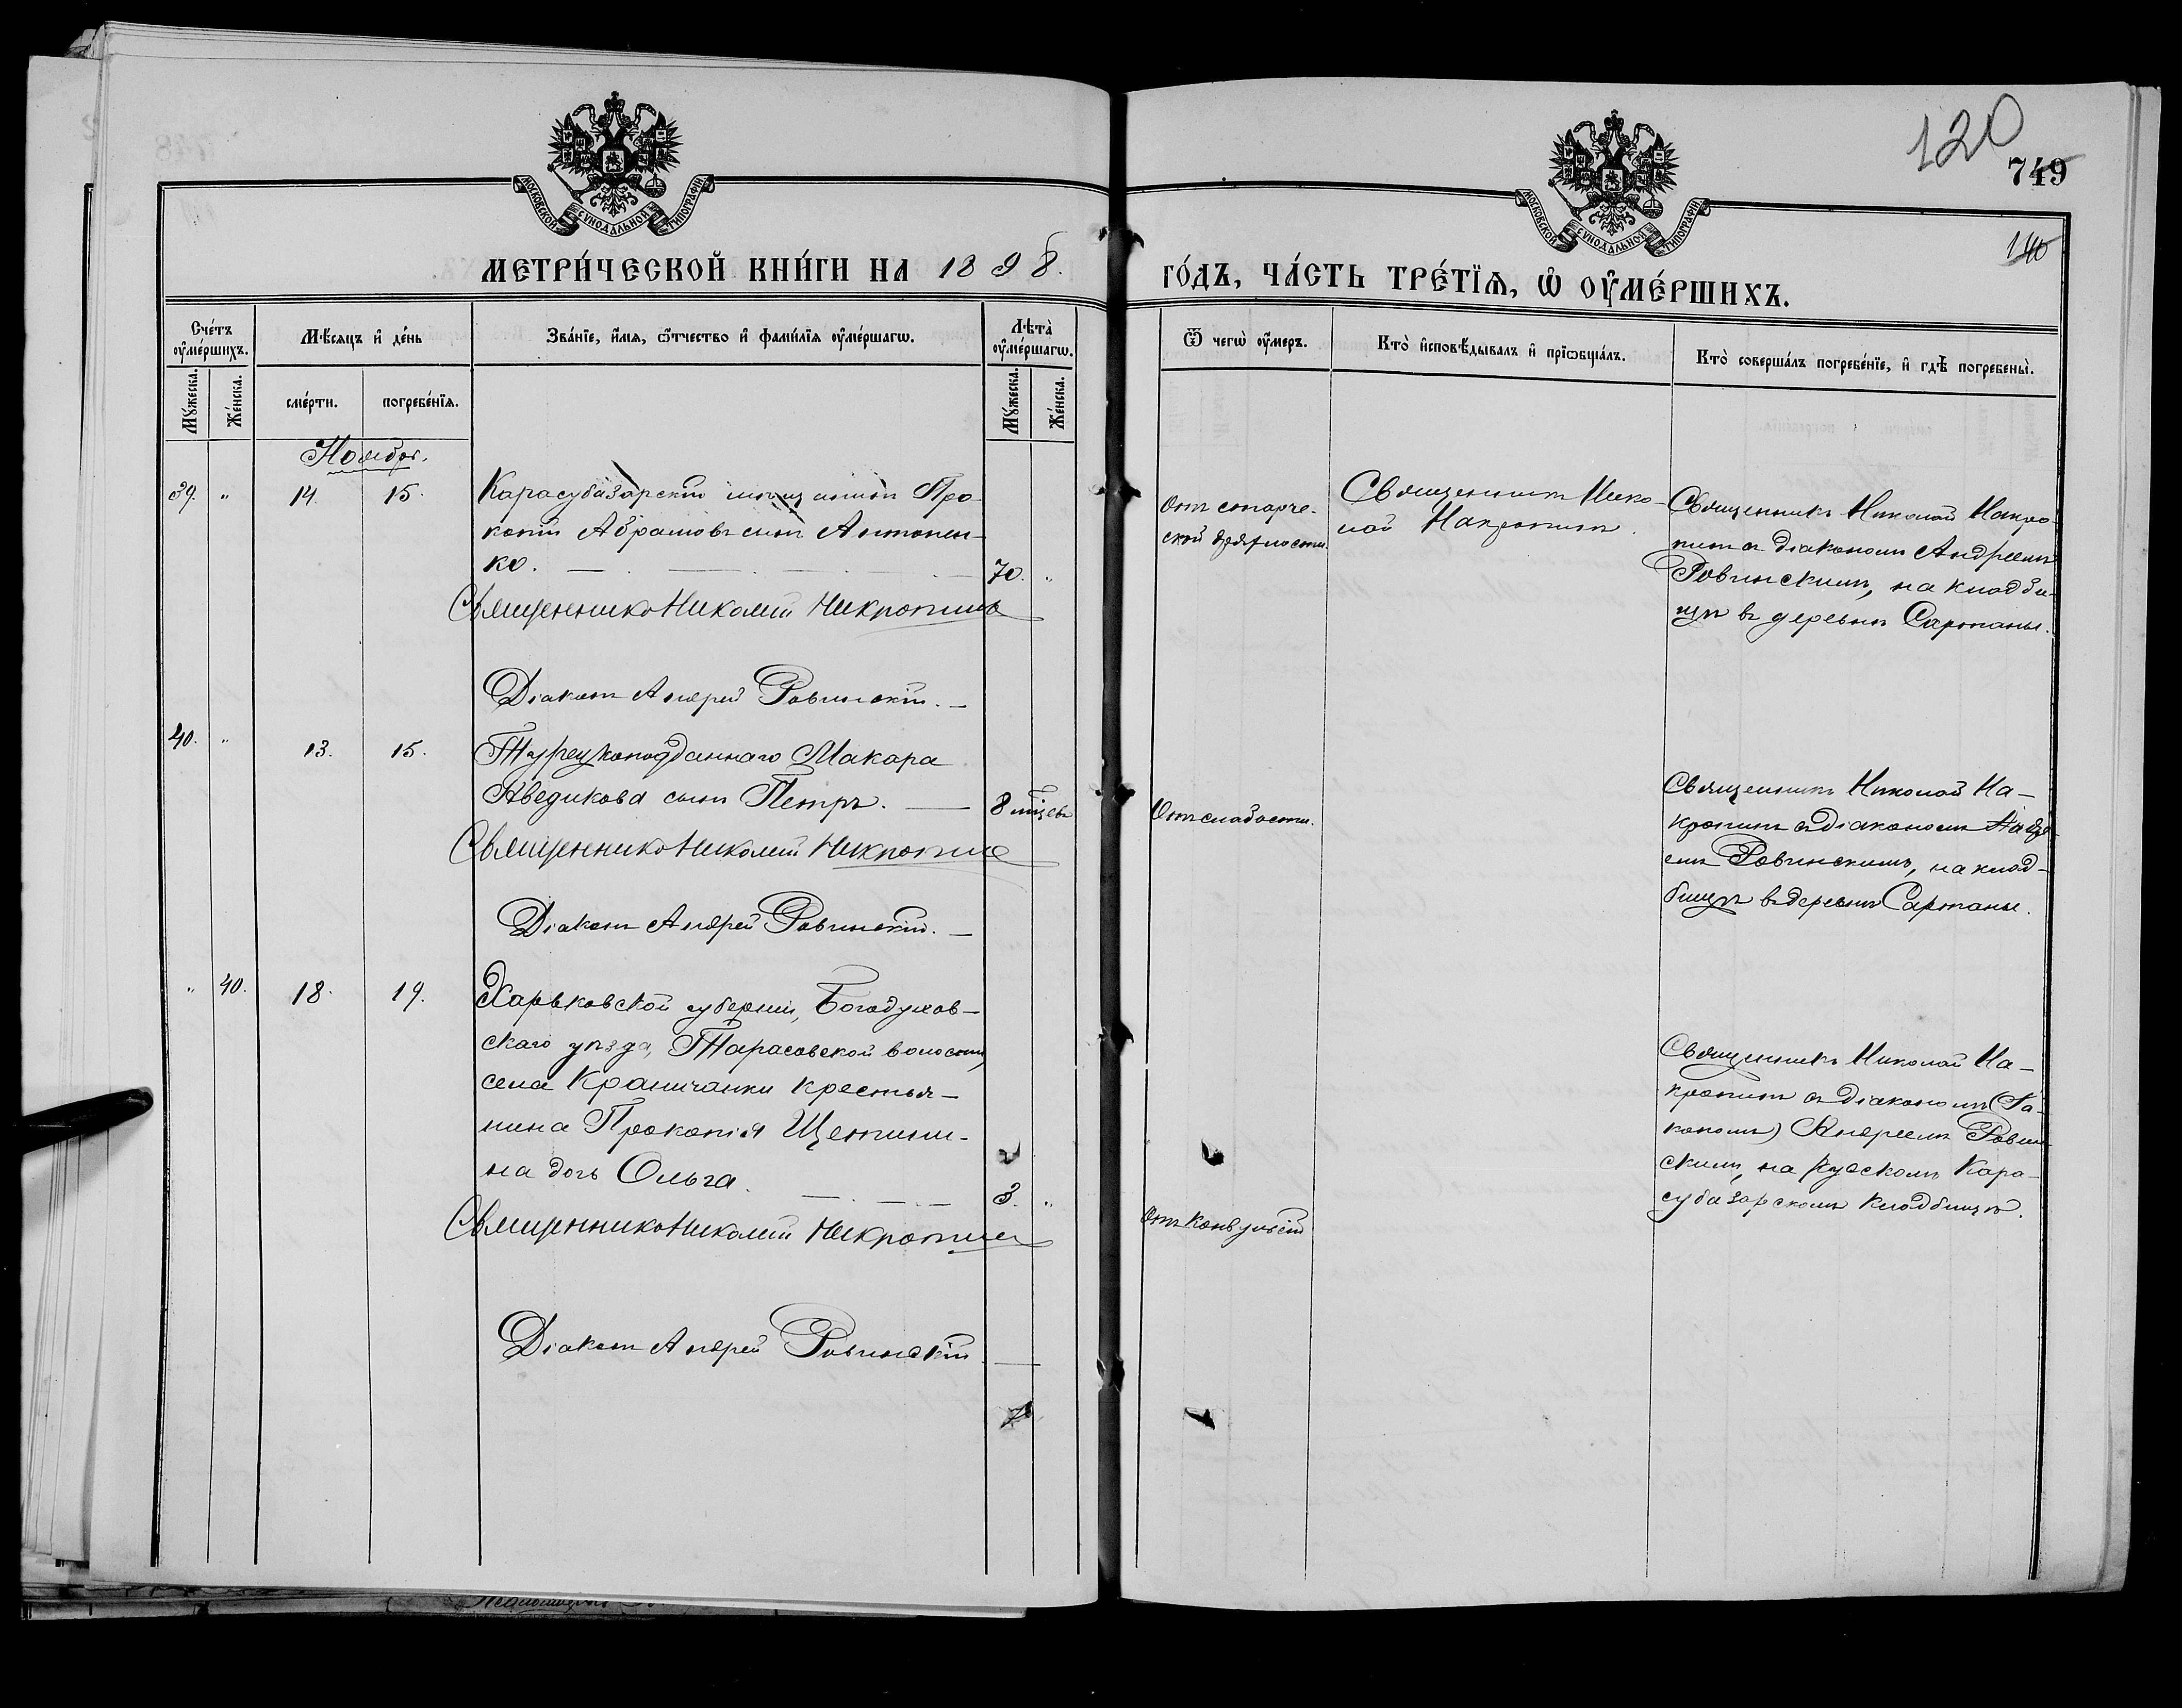 120
749
140
МОСКОВСКОЙ СѴНОДАЛЬНОЙ ТИПОГРАФІИ
МОСКОВСКОЙ СѴНОДАЛЬНОЙ ТИПОГРАФІИ
МЕТРИ́ЧЕСКОЙ КНИ́ГИ НА 1898.
ГО́ДЪ, ЧА́СТЬ ТРЕ́ТІѦ, Ѡ҆ ОУ҆МЕ́РШИХЪ.
Сче́тъ оу҆ме́ршихъ.
Мѣ́сяцъ и҆ де́нь
Зва́нїе, и҆́мя, ѻ҆́тчество и҆ фами́лїя оу҆ме́ршагѡ.
Лѣ́та оу҆ме́ршагѡ.
Ѿ чегѡ̀ оу҆́меръ.
Кто̀ и҆сповѣ́дывалъ и҆ прїѡбща́лъ.
Кто̀ соверша́лъ погребе́нїе, и҆ гдѣ̀ погребены̀.
Му́жеска.
Же́нска.
сме́рти.
погребе́нїѧ.
Му́жеска.
Же́нска.
Ноябрь.
39. " 14. 15.
Карасубазарскій мѣщанинъ Про-
копій Абрамовъ сынъ Антонен-
ко. 70. "
Священникъ Николай Накропинъ
Діаконъ Андрей Ровинскій.
Отъ старче-
ской дряхлости.
Священникъ Нико-
лай Накропинъ.
Священникъ Николай Накро-
пинъ съ діакономъ Андреемъ
Ровинскимъ, на кладби-
щѣ въ деревнѣ Сартаны.
40. " 13. 15.
Турецкоподданнаго Макара
Аведикова сынъ Петръ. 8 мѣцевъ
Священникъ Николай Накропинъ
Діаконъ Андрей Ровинскій.
Отъ слабости.
Священникъ Николай На-
кропинъ съ діакономъ Андре-
емъ Ровинскимъ, на клад-
бищѣ въ деревнѣ Сартаны.
" 40. 18. 19.
Харьковской губерніи, Богодухов-
скаго уѣзда, Тарасовской волости,
села Краничанки крестья-
нина Прокопія Щетини-
на дочь Ольга. 3. "
Священникъ Николай Накропинъ
Діаконъ Андрей Ровинскій
Отъ конвульсій
Священникъ Николай На-
кропинъ съ діакономъ
Андреемъ Ровин-
скимъ, на русскомъ Кара-
субазарскомъ кладбищѣ.